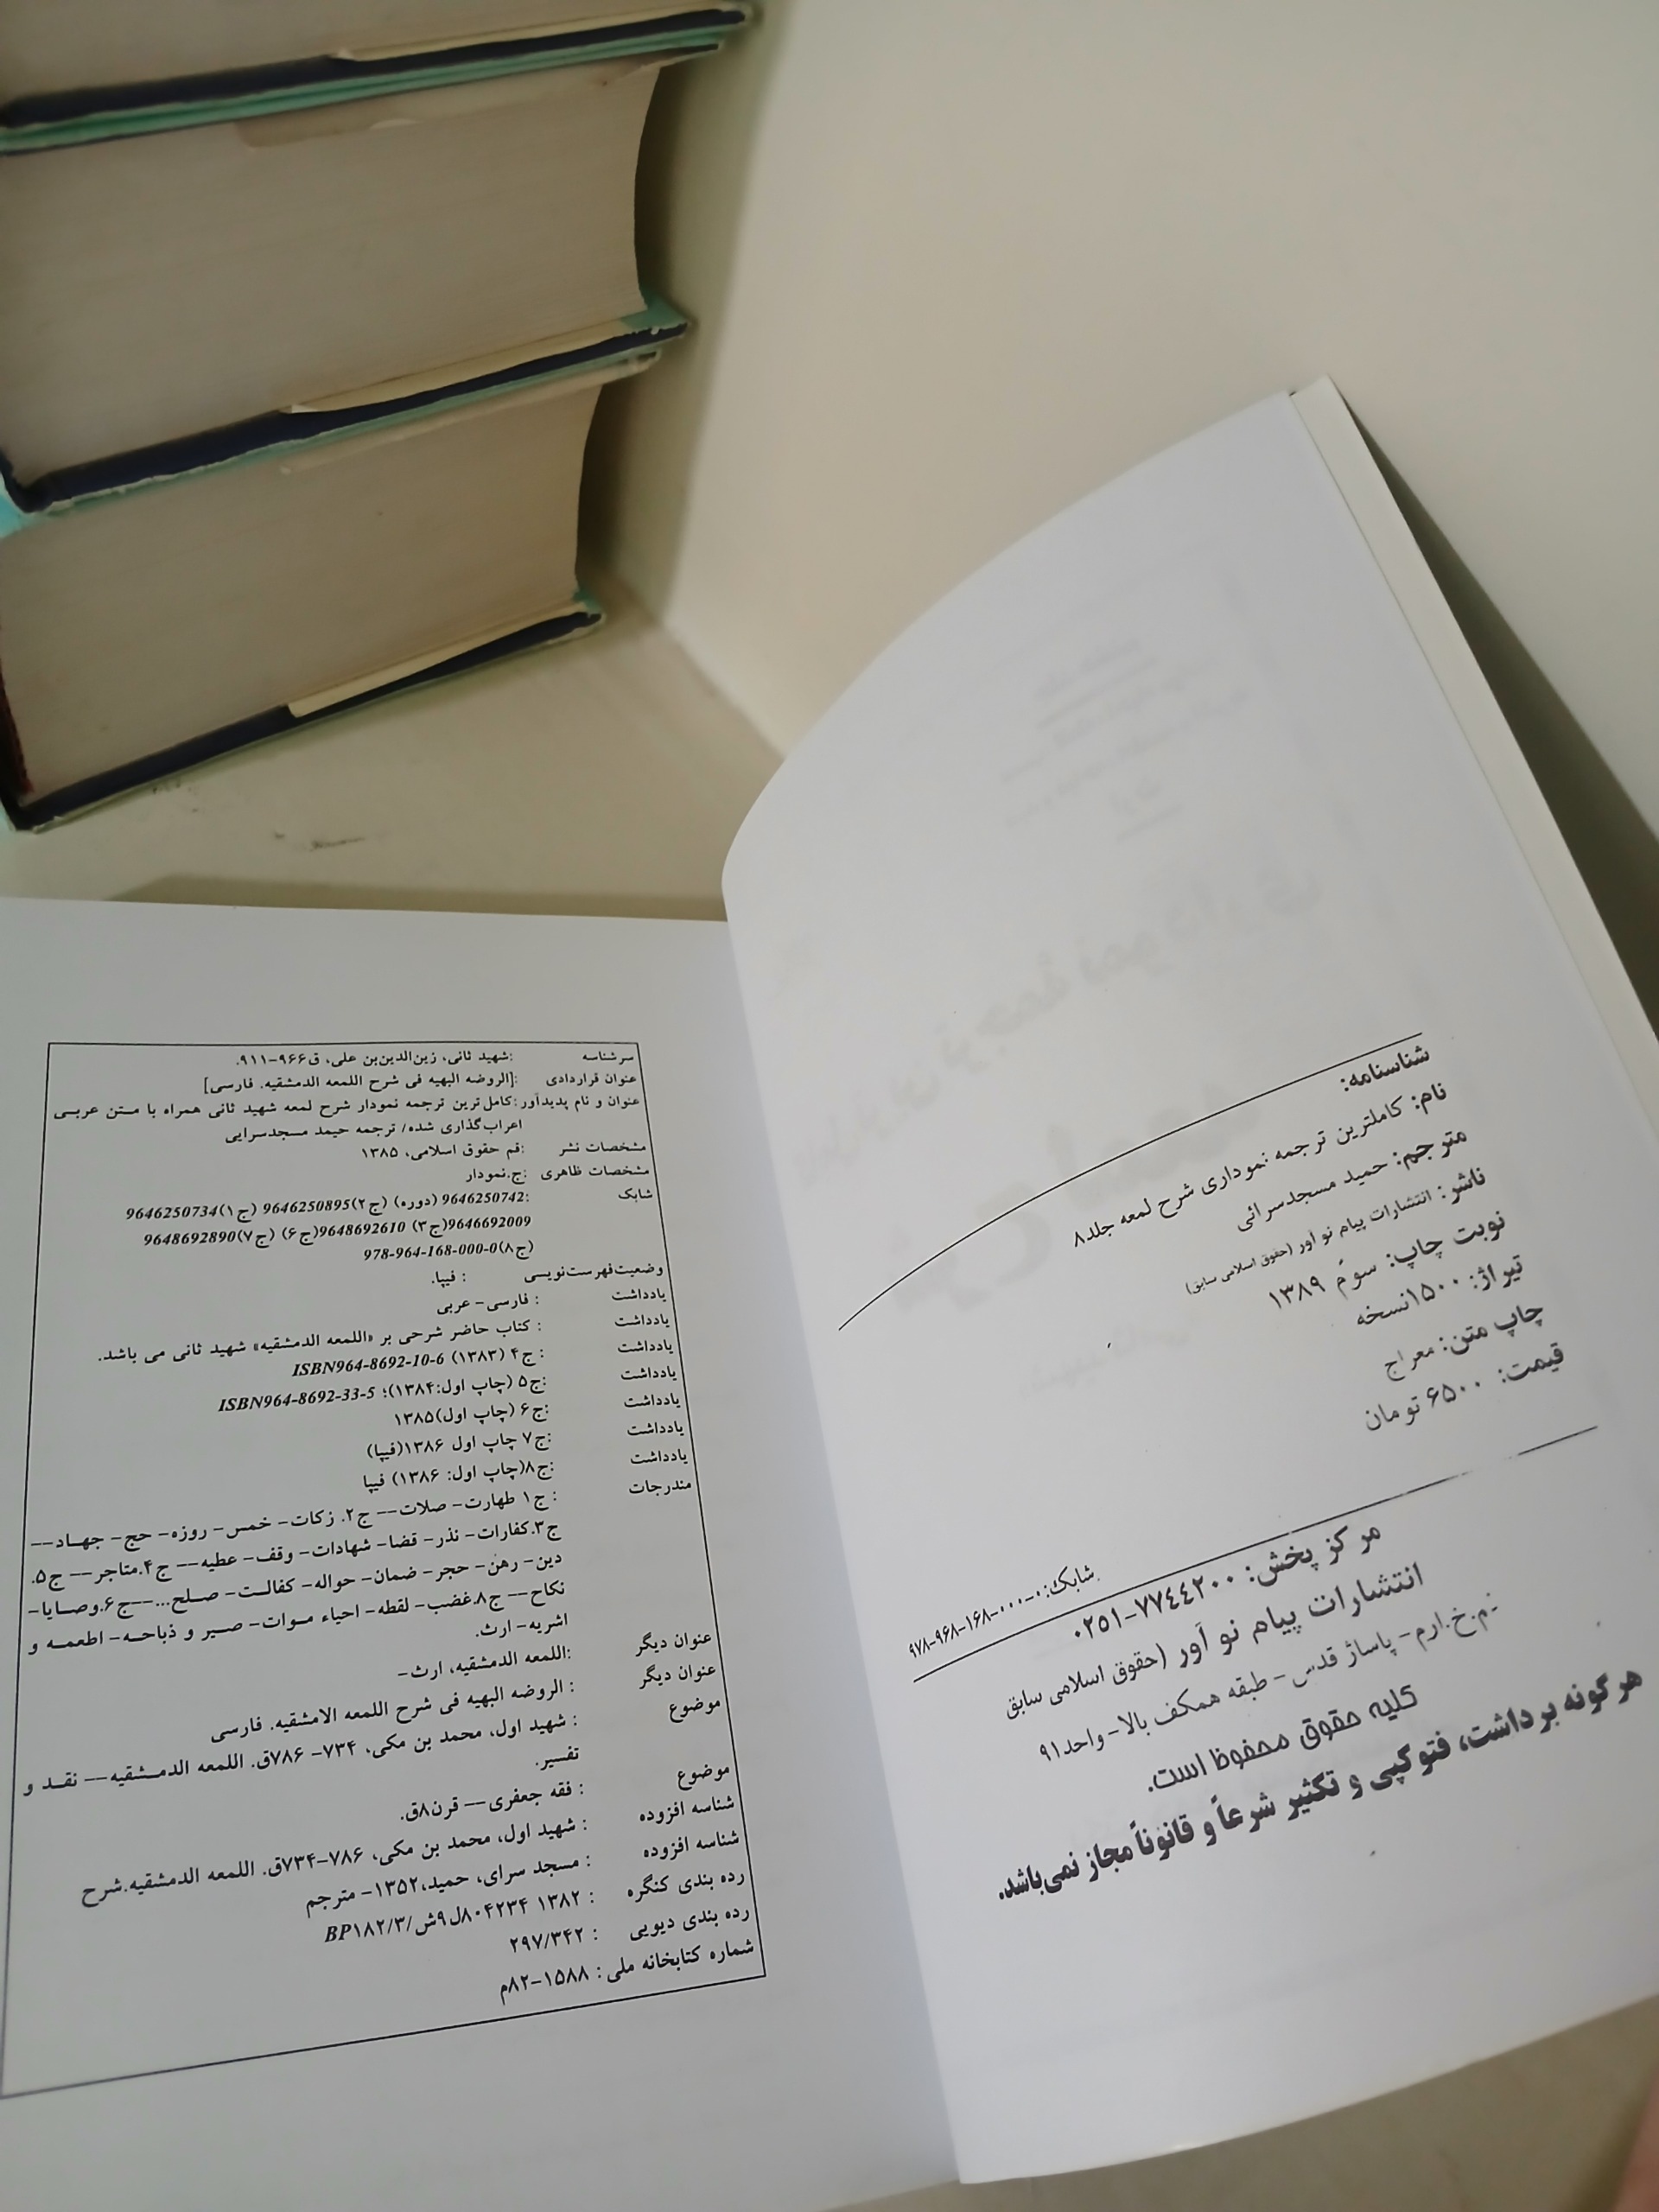 شناسنامه:
نام: کاملترین ترجمه نموداری شرح لمعه جلد۸
مترجم: حمید مسجدسرائی
ناشر: انتشارات پیام نو آور (حقوق اسلامی سابق)
نوبت چاپ: سوّم ۱۳۸۹
تیراژ: ۱۵۰۰نسخه
چاپ متن: معراج
قیمت: ۶۵۰۰ تومان
شابک: ۰-۰۰۰-۱۶۸-۹۶۸-۹۷۸
مرکز پخش: ۷۷٤٤۲۰۰-۰۲۵۱
انتشارات پیام نو آور (حقوق اسلامی سابق
م.خ.ارم- پاساژ قدس- طبقه همکف بالا- واحد۹۱
کلیه حقوق محفوظ است.
هرگونه برداشت، فتوکپی و تکثیر شرعاً و قانوناً مجاز نمی‌باشد.
سرشناسه :شهید ثانی، زین‌الدین‌بن علی، ق۹۶۶-۹۱۱.
عنوان قراردادی :[الروضه البهیه فی شرح اللمعه الدمشقیه. فارسی]
عنوان و نام پدیدآور :کامل‌ترین ترجمه نمودار شرح لمعه شهید ثانی همراه با متن عربی
اعراب‌گذاری شده/ ترجمه حیمد مسجدسرایی
مشخصات نشر :قم حقوق اسلامی، ۱۳۸۵
مشخصات ظاهری :ج.نمودار
شابک :9646250742 (دوره) (ج۲)9646250895 (ج۱)9646250734
9646692009(ج۳) 9648692610(ج۶) (ج۷)9648692890
(ج۸)978-964-168-000-0
وضعیت‌فهرست‌نویسی : فیپا.
یادداشت : فارسی- عربی
یادداشت : کتاب حاضر شرحی بر «اللمعه الدمشقیه» شهید ثانی می باشد.
یادداشت : ج۴ (۱۳۸۳) ISBN964-8692-10-6
یادداشت :ج۵ (چاپ اول:۱۳۸۴)؛ ISBN964-8692-33-5
یادداشت :ج۶ (چاپ اول)۱۳۸۵
یادداشت :ج۷ چاپ اول ۱۳۸۶(فیپا)
یادداشت :ج۸(چاپ اول: ۱۳۸۶) فیپا
مندرجات : ج۱ طهارت- صلات-- ج۲. زکات- خمس- روزه- حج- جهاد--
ج۳.کفارات- نذر- قضا- شهادات- وقف- عطیه-- ج۴.متاجر-- ج۵.
دین- رهن- حجر- ضمان- حواله- کفالت- صلح...--ج۶.وصایا-
نکاح-- ج۸.غضب- لقطه- احیاء موات- صیر و ذباحه- اطعمه و
اشربه- ارث.
عنوان دیگر :اللمعه الدمشقیه، ارث-
عنوان دیگر : الروضه البهیه فی شرح اللمعه الامشقیه. فارسی
موضوع : شهید اول، محمد بن مکی، ۷۳۴- ۷۸۶ق. اللمعه الدمشقیه-- نقد و
تفسیر.
موضوع : فقه جعفری-- قرن۸ق.
شناسه افزوده : شهید اول، محمد بن مکی، ۷۸۶-۷۳۴ق. اللمعه الدمشقیه.شرح
شناسه افزوده : مسجد سرای، حمید،۱۳۵۲- مترجم
رده بندی کنگره : ۱۳۸۲ ۸۰۴۲۳۴ل۹ش/BP۱۸۲/۳
رده بندی دیویی : ۲۹۷/۳۴۲
شماره کتابخانه ملی : ۱۵۸۸-۸۲م